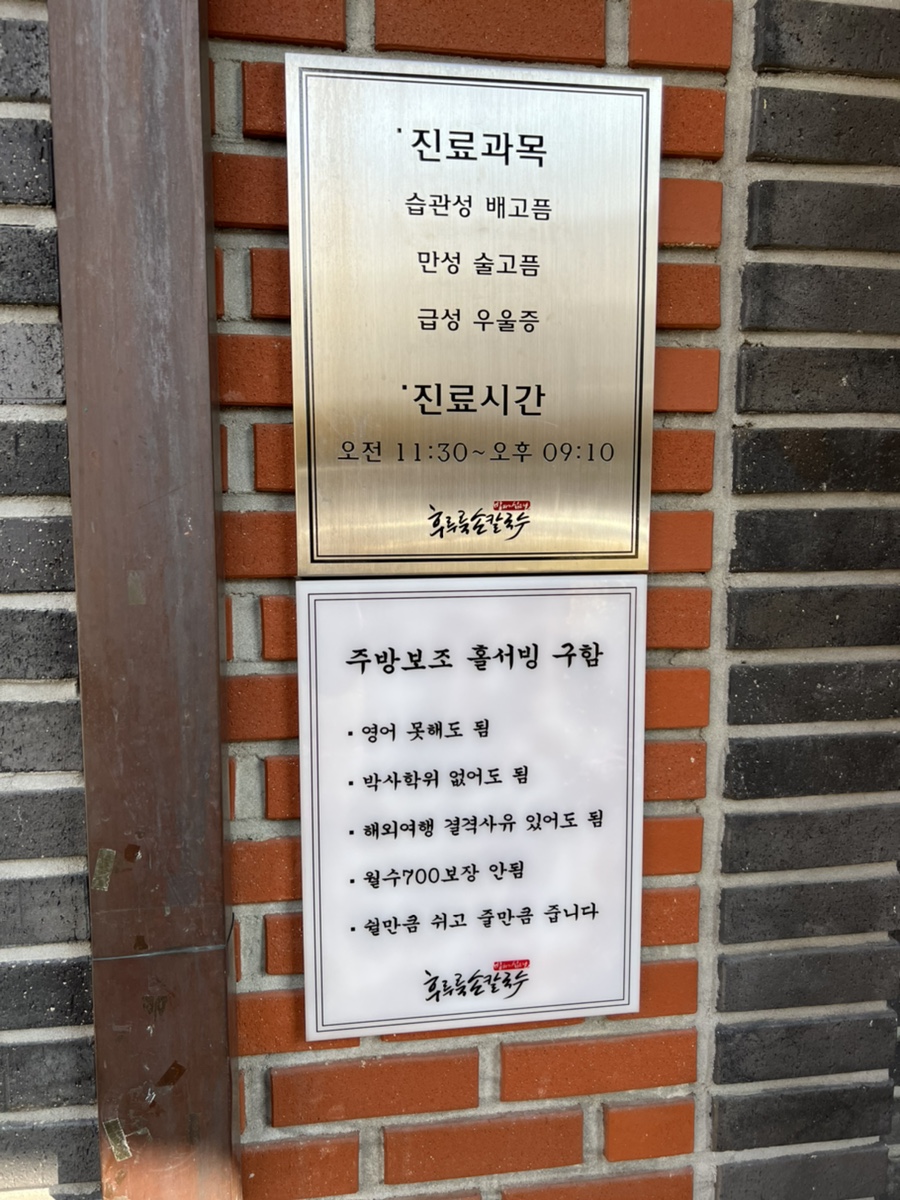 ·진료과목
습관성 배고픔
만성 술고픔
급성 우울증
·진료시간
오전 11:30~오후 09:10
후루룩손칼국수
주방보조 홀서빙 구함
· 영어 못해도 됨
· 박사학위 없어도 됨
· 해외여행 결격사유 있어도 됨
· 월수700보장 안됨
· 쉴만큼 쉬고 줄만큼 줍니다
후루룩손칼국수